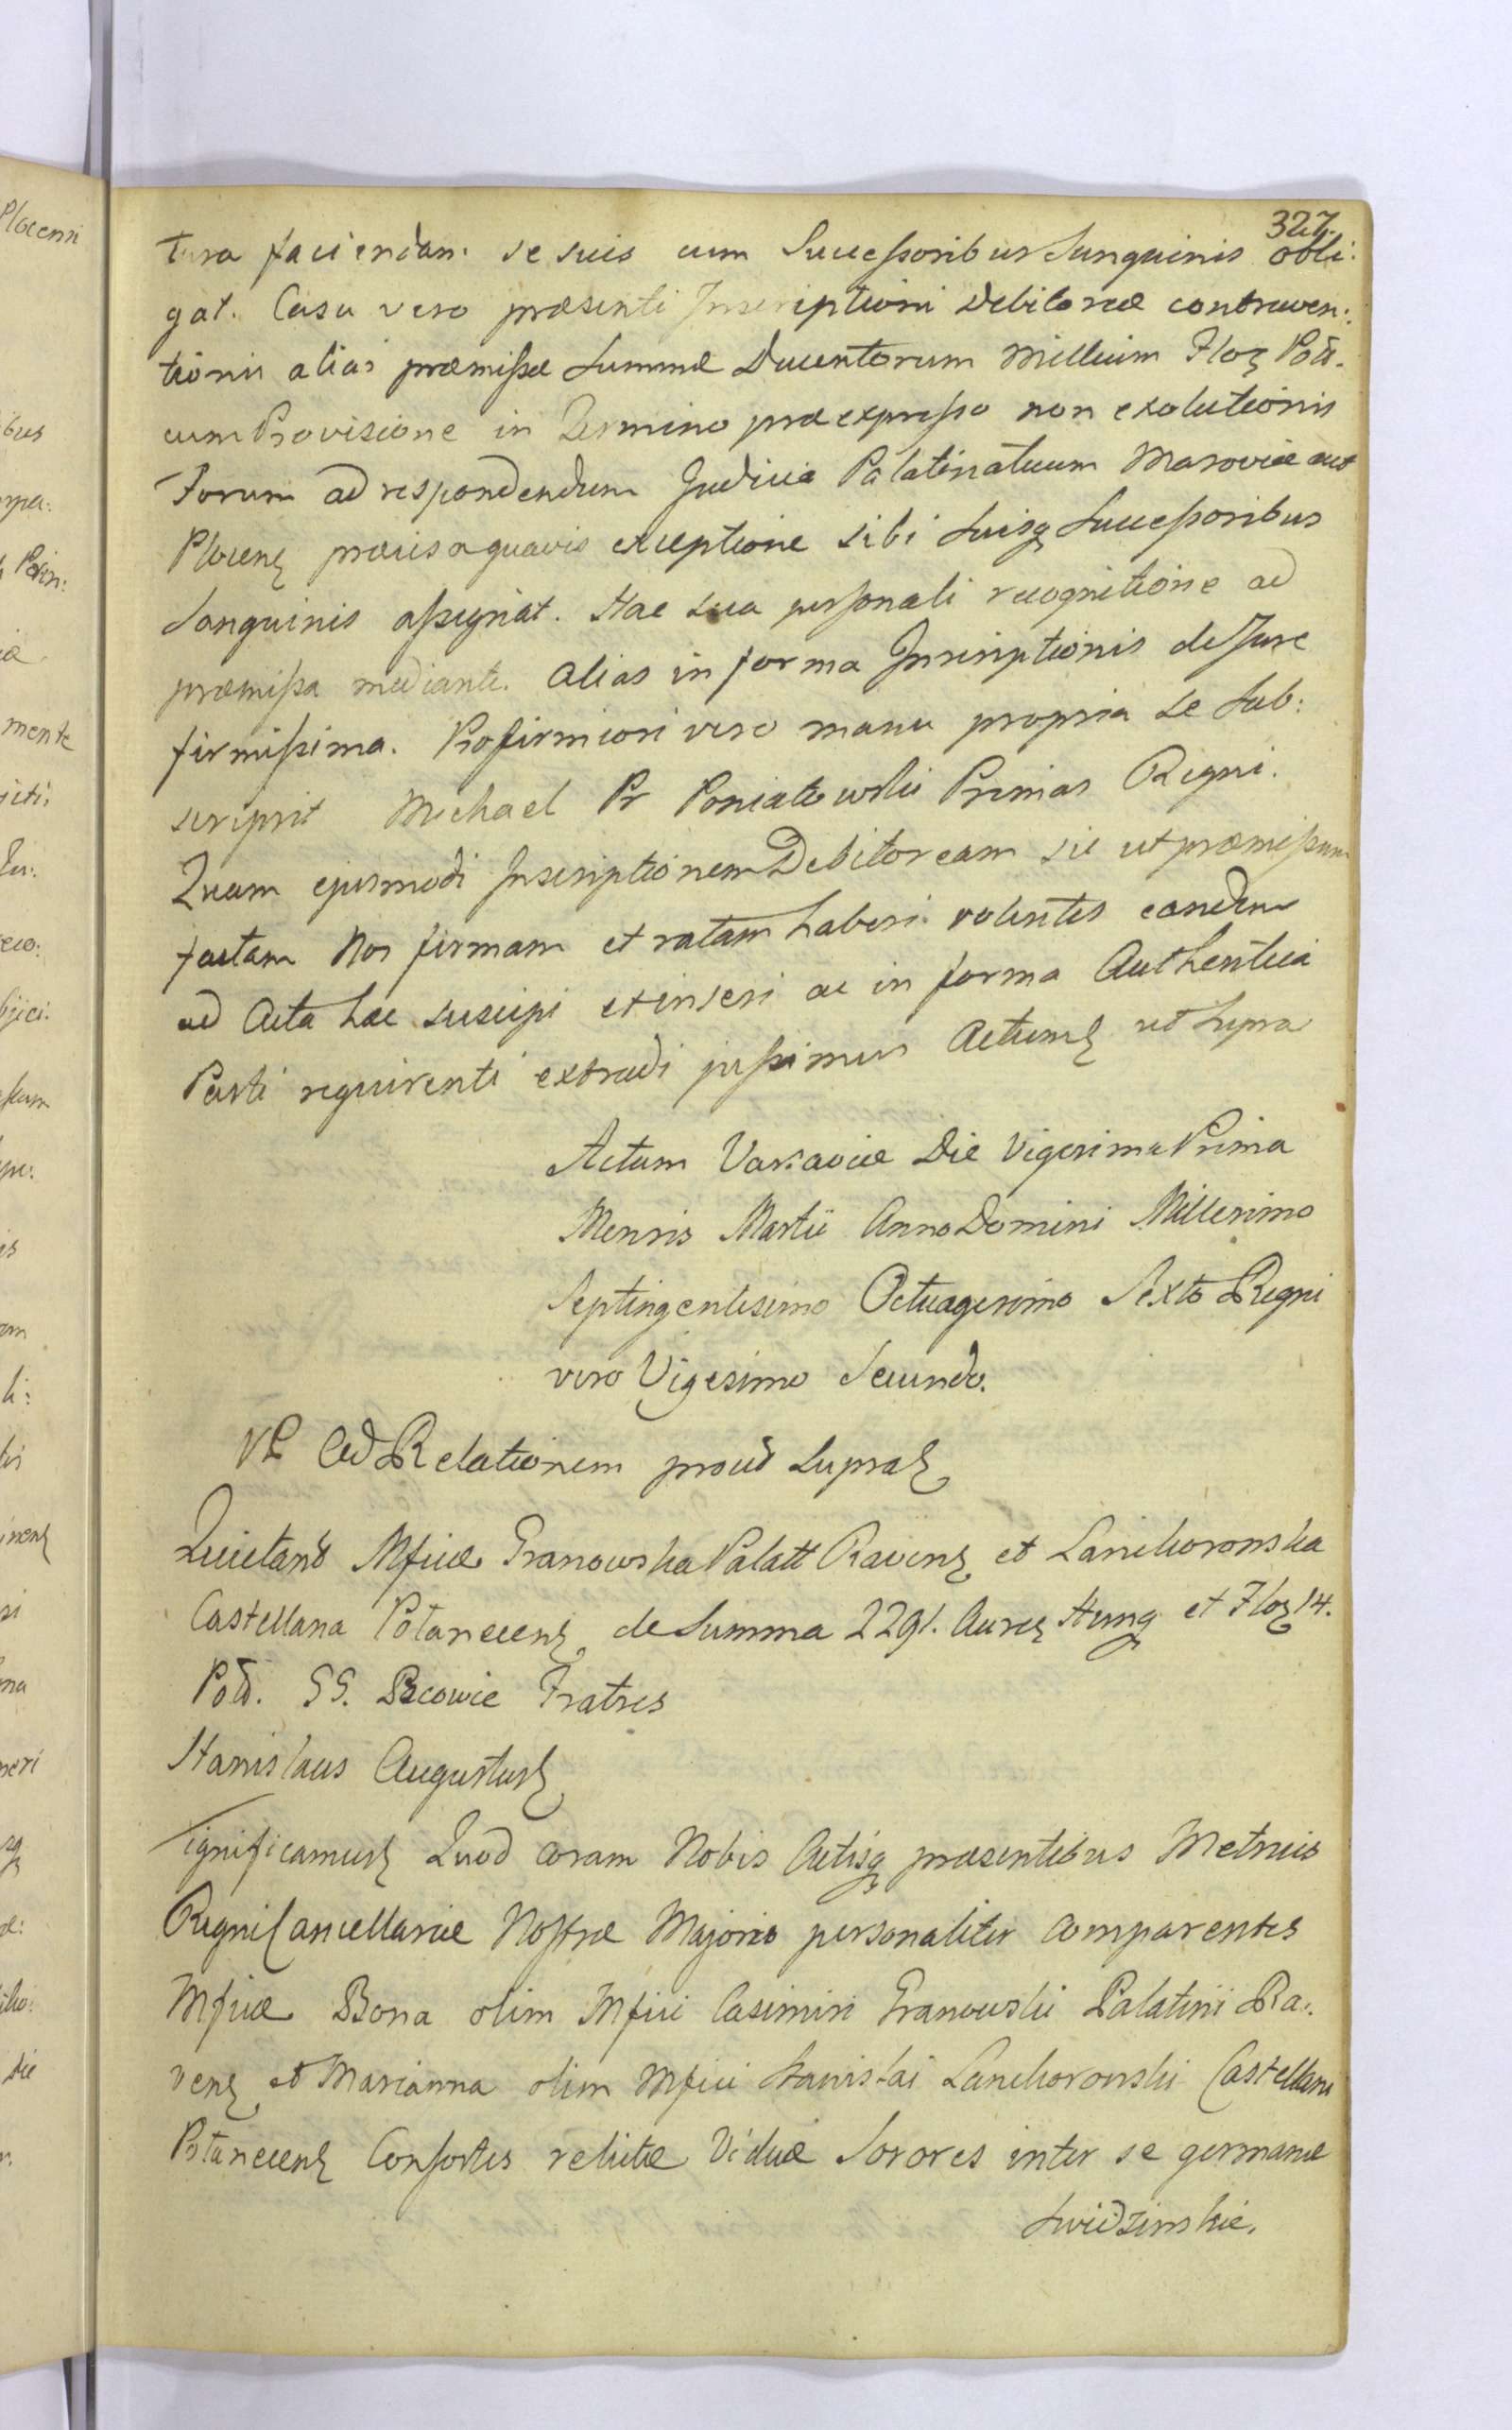 327.
tura faciendam se suis cum Successoribus Sanguinis obli:
gat. Casu vero præsenti Inscriptioni Debitoreæ contraven:
tionis alias præmissæ Summæ Ducentorum Millium Floꝝ Poll.
cum Provisione in Termino præexpresso non exolutionis
Forum ad respondendum Judicia Palatinatuum Masoviæ aut
Plocenꝭ præcisa quavis exceptione sibi suisꝗ Successoribus
Sanguinis assignat. Hac sua personali recognitione ad
præmissa mediante. alias in forma Inscriptionis de Jure
firmissima. Pro firmiori vero manu propria se sub:
scripsit Michael Pr Poniatowski Primas Regni.
Quam ejusmodi Inscriptionem Debitoream sic ut præmissum
factam Nos firmam et ratam haberi volentes eandem
ad Acta hæc suscipi et inseri ac in forma Authentica
Parti requirenti extradi jussimus Actumꝭ ut Supra
Actum Varsaviæ Die Vigesima Prima
Mensis Martii Anno Domini Millesimo
Septingentesimo Octuagesimo Sexto Regni
vero Vigesimo Secundo.
VL Ad Relationem prout Supraꝭ
Quietant Mficæ Granowska Palatt Ravenꝭ et Lanckoronska
Castellana Połanecenꝭ de Summa 2291. Aureꝝ Hung et Floꝝ 14.
Poll. GG. Bcowie Fratres
Stanislaus Augustusꝭ
Significamusꝭ Quod coram Nobis Actisꝗ præsentibus Metrices
Regni Cancellariæ Nostræ Majoris personaliter comparentes
Mficæ Bona olim Mfici Casimiri Granowski Palatini Ra:
venꝭ et Marianna olim Mfici Stanislai Lanckoronski Castellani
Połanecenꝭ Consortes relictæ Viduæ Sorores inter se germanæ
Swidzinskie.
Plocensi
mente